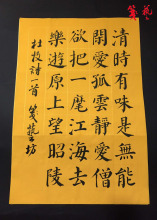 清時有味是無能
閑愛孤雲靜愛僧
欲把一麾江海去
樂遊原上望昭陵
杜牧詩一首 箋藝坊
箋藝